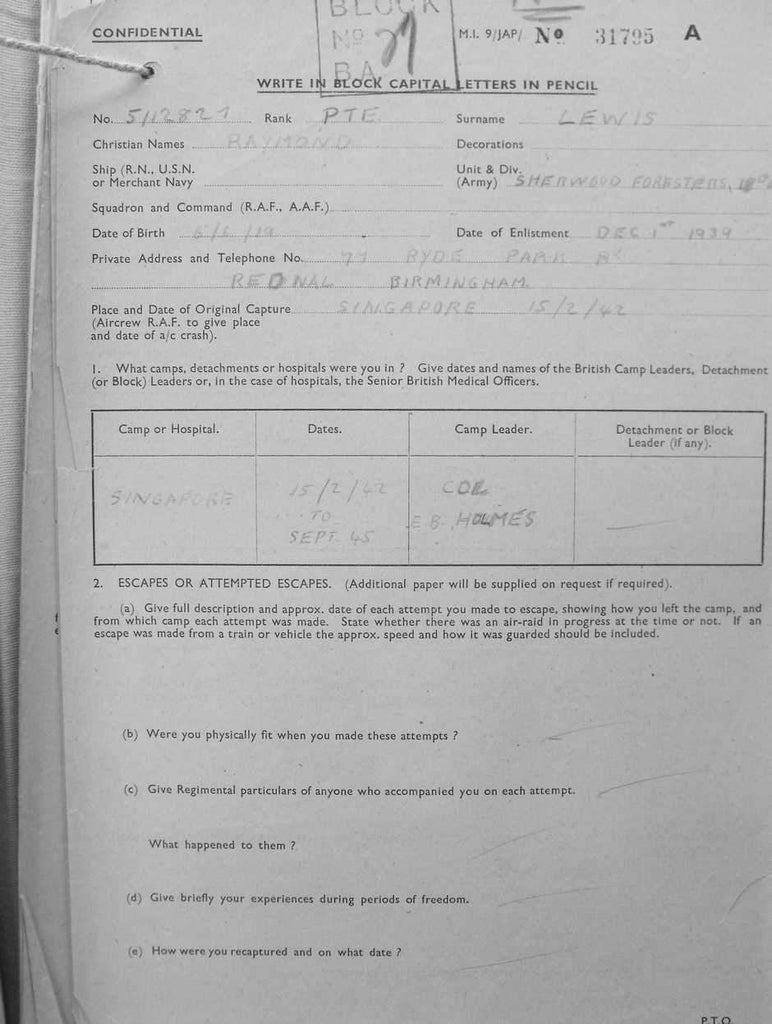 BLOCK
No 27
BA
CONFIDENTIAL
M.I. 9/JAP/ No 31795 A
WRITE IN BLOCK CAPITAL LETTERS IN PENCIL
No. Rank PTE Surname LEWIS
Christian Names RAYMOND Decorations
Ship (R.N., U.S.N. or Merchant Navy Unit & Div. (Army) SHERWOOD FORESTERS,
Squadron and Command (R.A.F., A.A.F.)
Date of Birth Date of Enlistment DEC 1ST 1939
Private Address and Telephone No. 77 RYDE PARK RD
REDNAL BIRMINGHAM.
Place and Date of Original Capture SINGAPORE 15/2/42
(Aircrew R.A.F. to give place
and date of a/c crash).
1. What camps, detachments or hospitals were you in ? Give dates and names of the British Camp Leaders, Detachment
(or Block) Leaders or, in the case of hospitals, the Senior British Medical Officers.
Camp or Hospital. Dates. Camp Leader. Detachment or Block Leader (if any).
SINGAPORE 15/2/42 TO SEPT. 45 COL E.B. HOLMES
2. ESCAPES OR ATTEMPTED ESCAPES. (Additional paper will be supplied on request if required).
(a) Give full description and approx. date of each attempt you made to escape, showing how you left the camp, and
from which camp each attempt was made. State whether there was an air-raid in progress at the time or not. If an
escape was made from a train or vehicle the approx. speed and how it was guarded should be included.
(b) Were you physically fit when you made these attempts ?
(c) Give Regimental particulars of anyone who accompanied you on each attempt.
What happened to them ?
(d) Give briefly your experiences during periods of freedom.
(e) How were you recaptured and on what date ?
P.T.O.